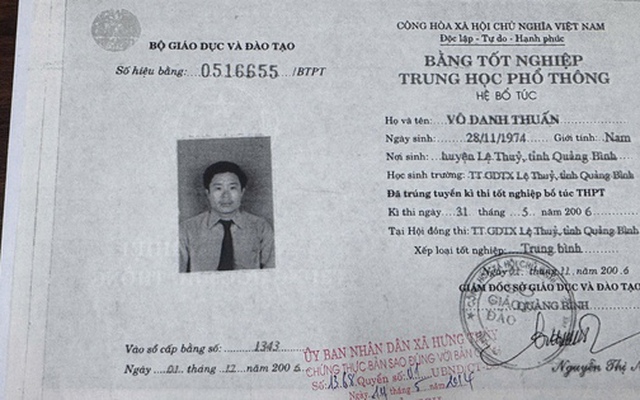 BỘ GIÁO DỤC VÀ ĐÀO TẠO
Số hiệu bằng: 0516655 /BTPT
Vào sổ cấp bằng số: 1343
Ngày 01 tháng 12 năm 2006
CỘNG HÒA XÃ HỘI CHỦ NGHĨA VIỆT NAM
Độc lập - Tự do - Hạnh phúc
BẰNG TỐT NGHIỆP
TRUNG HỌC PHỔ THÔNG
HỆ BỔ TÚC
Họ và tên: VÕ DANH THUẤN
Ngày sinh: 28/11/1974 Giới tính: Nam
Nơi sinh: huyện Lệ Thuỷ, tỉnh Quảng Bình
Học sinh trường: TT GDTX Lệ Thuỷ, tỉnh Quảng Bình
Đã trúng tuyển kì thi tốt nghiệp bổ túc THPT
Kì thi ngày 31 tháng 5 năm 2006
Tại Hội đồng thi: TT GDTX Lệ Thuỷ, tỉnh Quảng Bình
Xếp loại tốt nghiệp: Trung bình
Ngày 01 tháng 11 năm 2006
GIÁM ĐỐC SỞ GIÁO DỤC VÀ ĐÀO TẠO
QUẢNG BÌNH
GIÁO
ĐÀO
Nguyễn Thị
ỦY BAN NHÂN DÂN XÃ HƯNG THỦY
CHỨNG THỰC BẢN SAO ĐÚNG VỚI BẢN
Số: 1368 Quyển số: 01 UBND/CT
Ngày 14 tháng 5 năm 2014